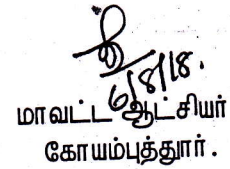 6/8/18.
மாவட்ட ஆட்சியர்
கோயம்புத்தூர்.